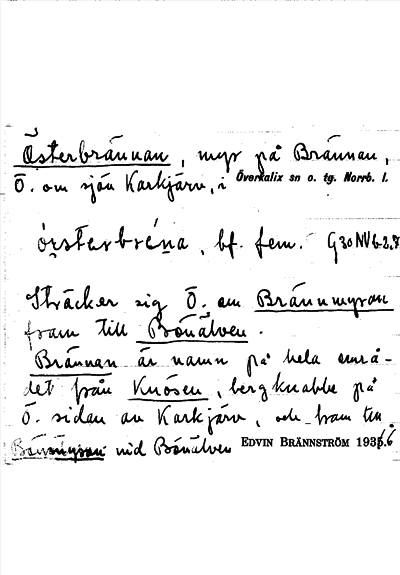 Österbrännan, myr på Brännan,
Ö. om sjön Karkjärv, i Överkalix sn o. tg. Norrb. l.
bf. fem.
Sträcker sig Ö. om Brännmyran
fram till Bönälven.
Brännan är namn på hela områ-
det från Knösen, bergknabbe på
Ö. sidan av Karkjärv, och fram till
vid Bönälven EDVIN BRÄNNSTRÖM 1936